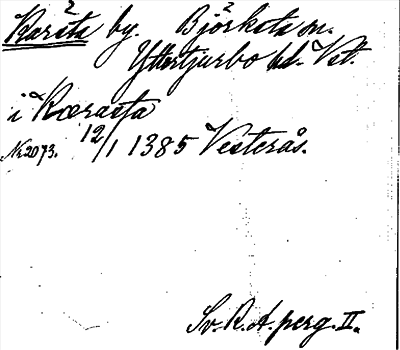 Karsta by. Björksta sn.
Yttertjurbo hd. Vstm.
i Karasta
Nr 2073. 12/1 1385 Vesterås.
Sv. R. A. perg. II.